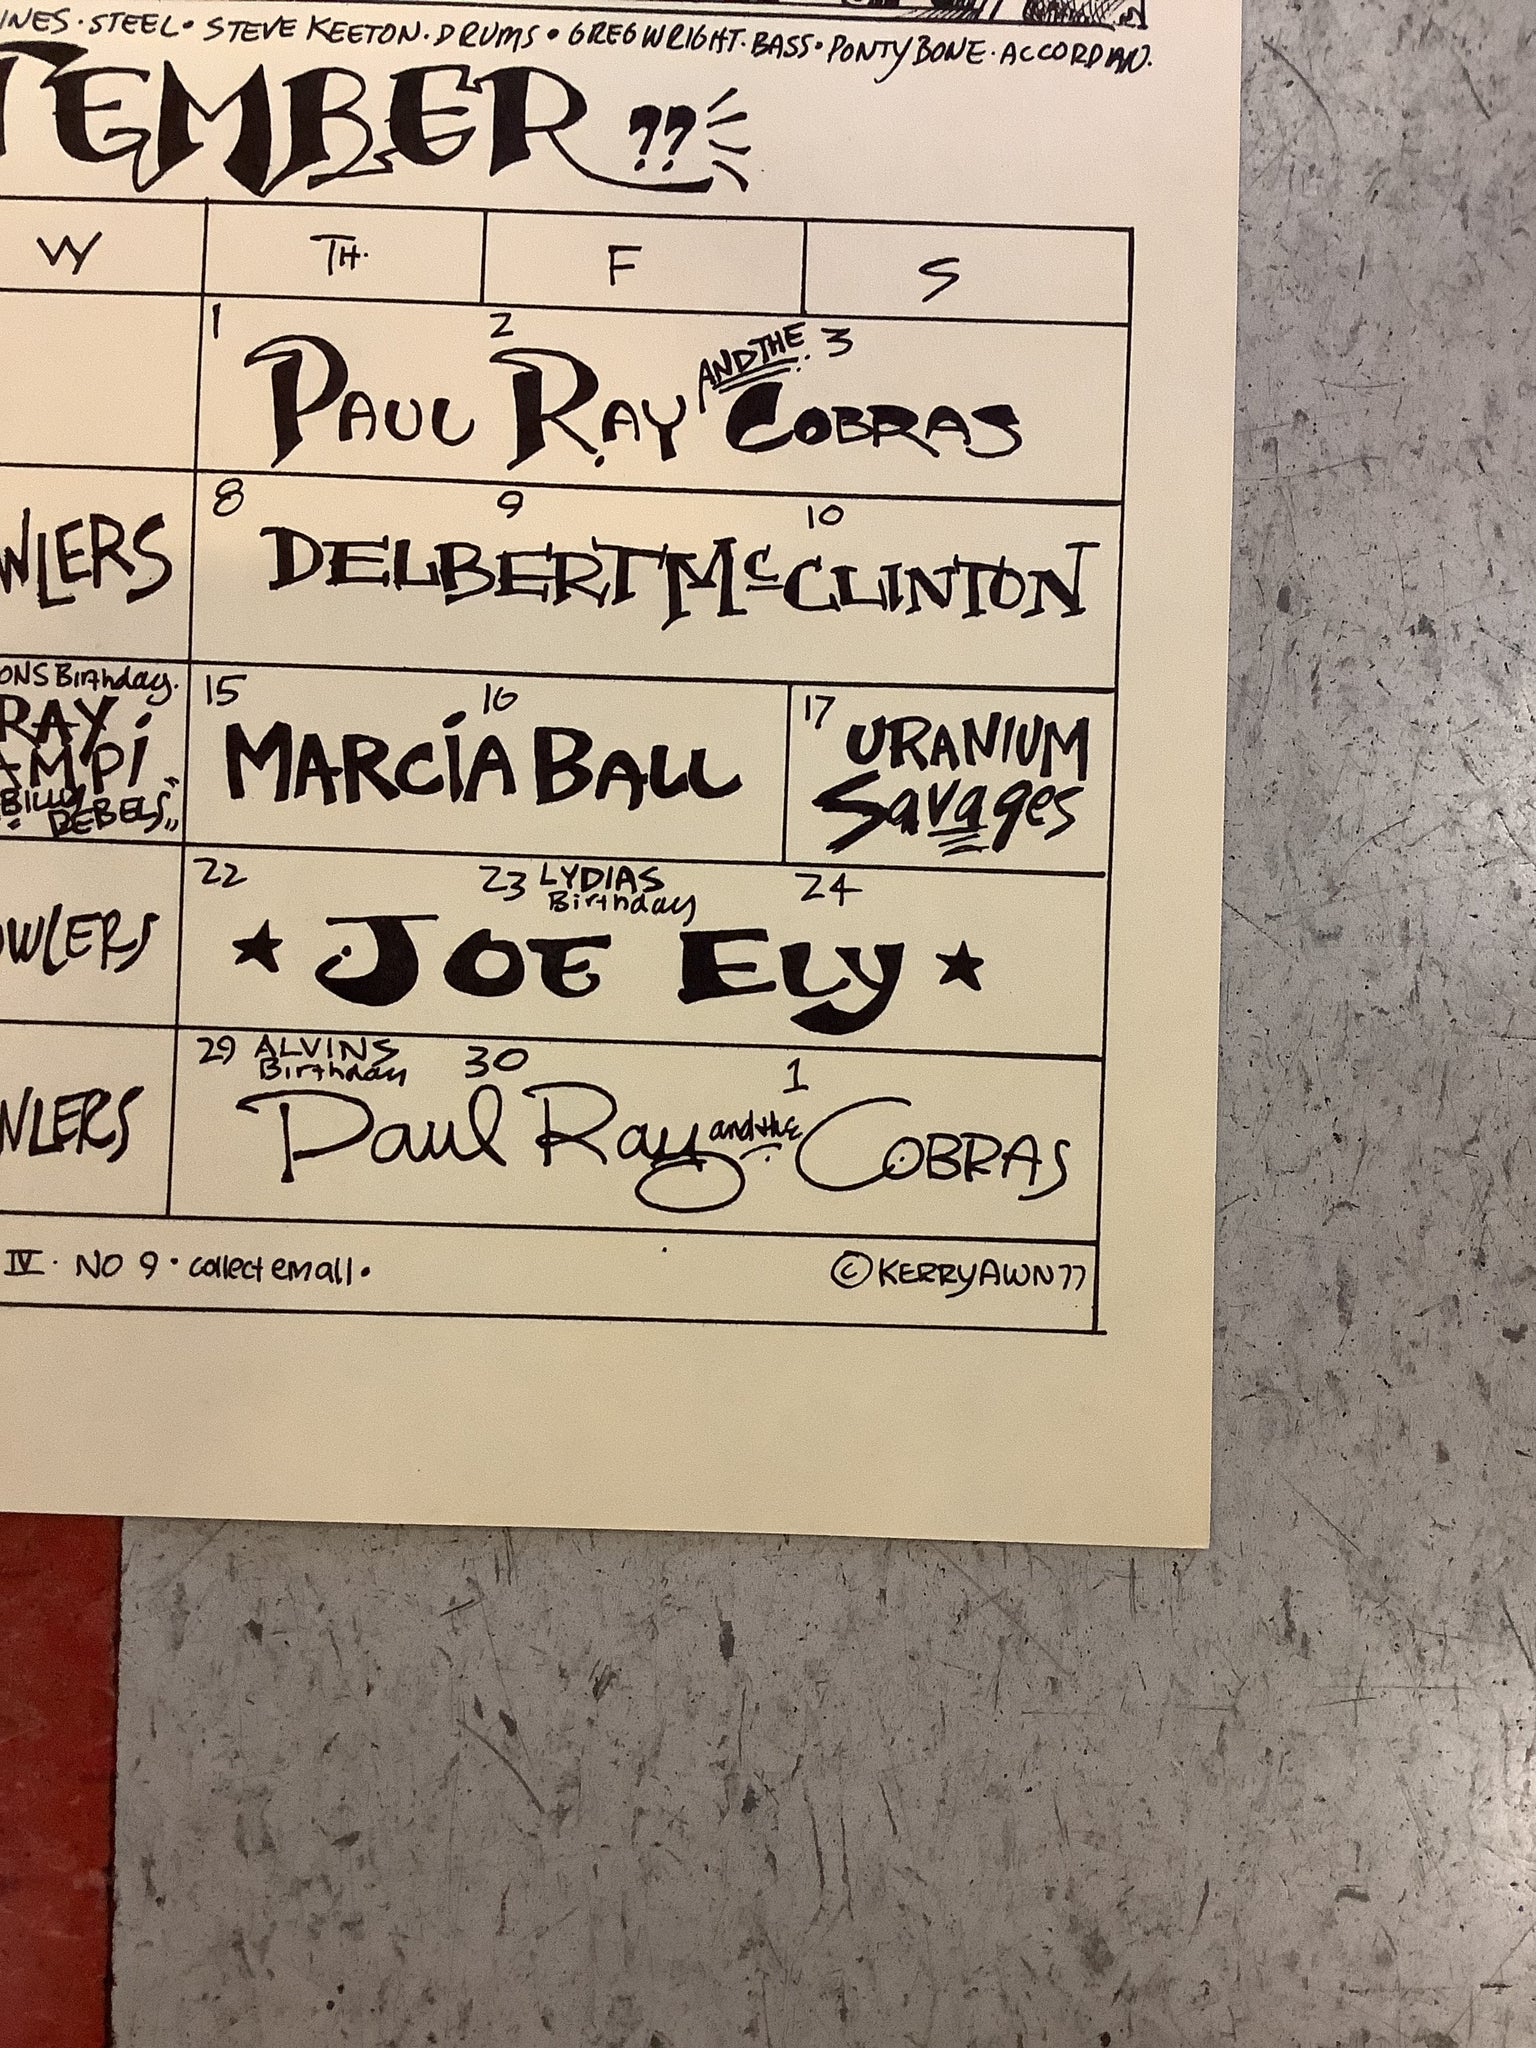 INES · STEEL • STEVE KEETON · DRUMS • GREG WRIGHT · BASS • PONTY BONE · ACCORDIAN.
TEMBER ??
W TH. F S
1 2 3
PAUL RAY AND THE COBRAS
8 9 10
WLERS DELBERT McCLINTON
ONS Birthday. 15 16 17
RAY
AMPi
BILLY
REBELS"
MARCIA BALL
URANIUM
Savages
22 23 LYDIAS Birthday 24
OWLERS ★ JOE ELY ★
29 ALVINS Birthday 30 1
WLERS Paul Ray and the COBRAS
IV · NO 9 · collect em all • © KERRY AWN 77